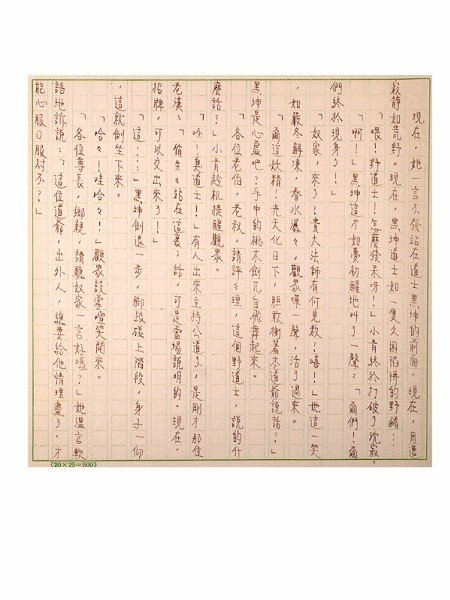 現在，她一言不發站在道士黑坤的前面。周遭
寂靜如荒野。現在，黑坤道士如一隻久困陷阱的野豬⋯
「喂！野道士！怎麼發呆呀！」小青終於打破了沈寂。
「啊！」黑坤這才如夢初醒地叫了一聲：「爾們！爾
們終於現身了！」
「奴家，來了？貴大法師有何見教？嘻！」她這一笑
，如嚴冬解凍，春水漾々，觀眾嘩一聲，活了過來。
「爾這妖精！光天化日下，胆敢衝著本道爺說話？」
黑坤是心虛吧？手中的桃木劍兀自飛舞起來。
「各位老伯，老叔，請評々理，這個野道士，說的什
麼話？」小青趁机提醒觀眾。
「咏！臭道士！」有人出來主持公道了，是剛才那位
老漢：「偷生々站在這裏，話，可是當場說明的，現在，
招牌，可以交出來了！」
「這⋯⋯」黑坤倒退一步，腳跟碰上階段，身子一仰
，這就倒坐下來。
「哈々！哇哈々！」觀眾鼓掌喧笑開來。
「各位尊長，鄉親，請聽奴家一言好嗎？」她溫言軟
語地訴說：「這位道爺，出外人，總要給他情理盡了，才
能心服口服对不？」
(20×25=500)